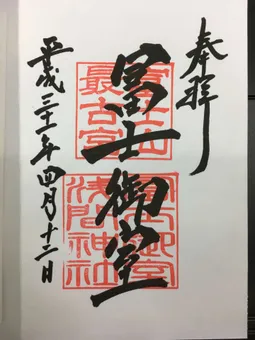 奉拜
冨士御室
富士山
最古宮
冨士御室
浅間神社
平成三十一年四月十二日